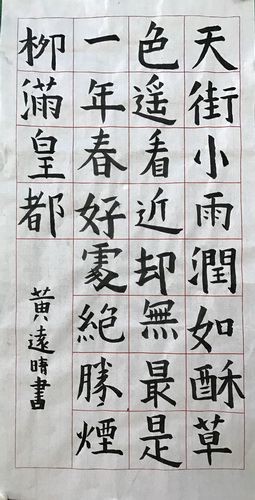 天街小雨潤如酥草
色遥看近却無最是
一年春好處絶勝煙
柳滿皇都
黃遠晴書